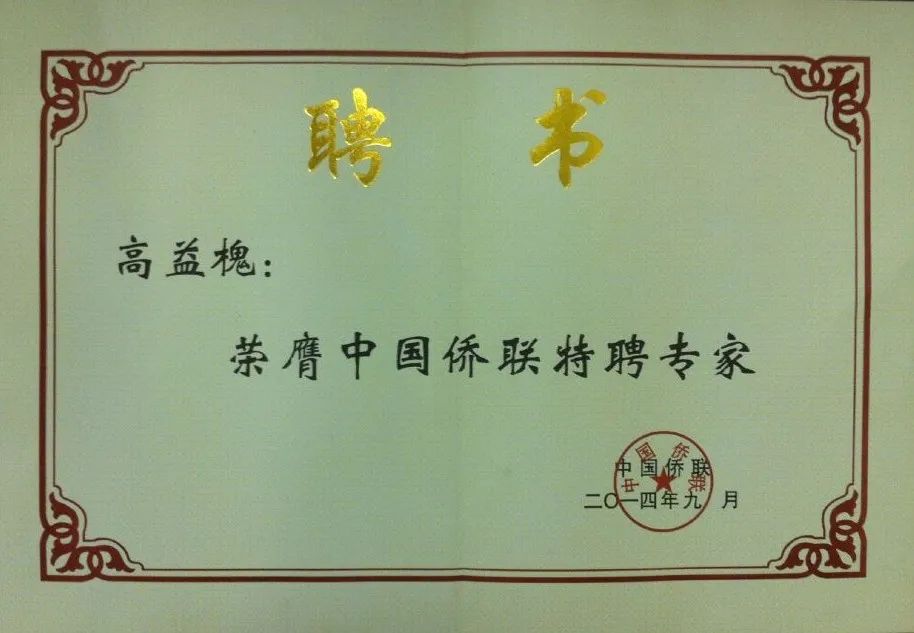 聘书
高益槐：
荣膺中国侨联特聘专家
中国侨联
中国侨联
二〇一四年九 月